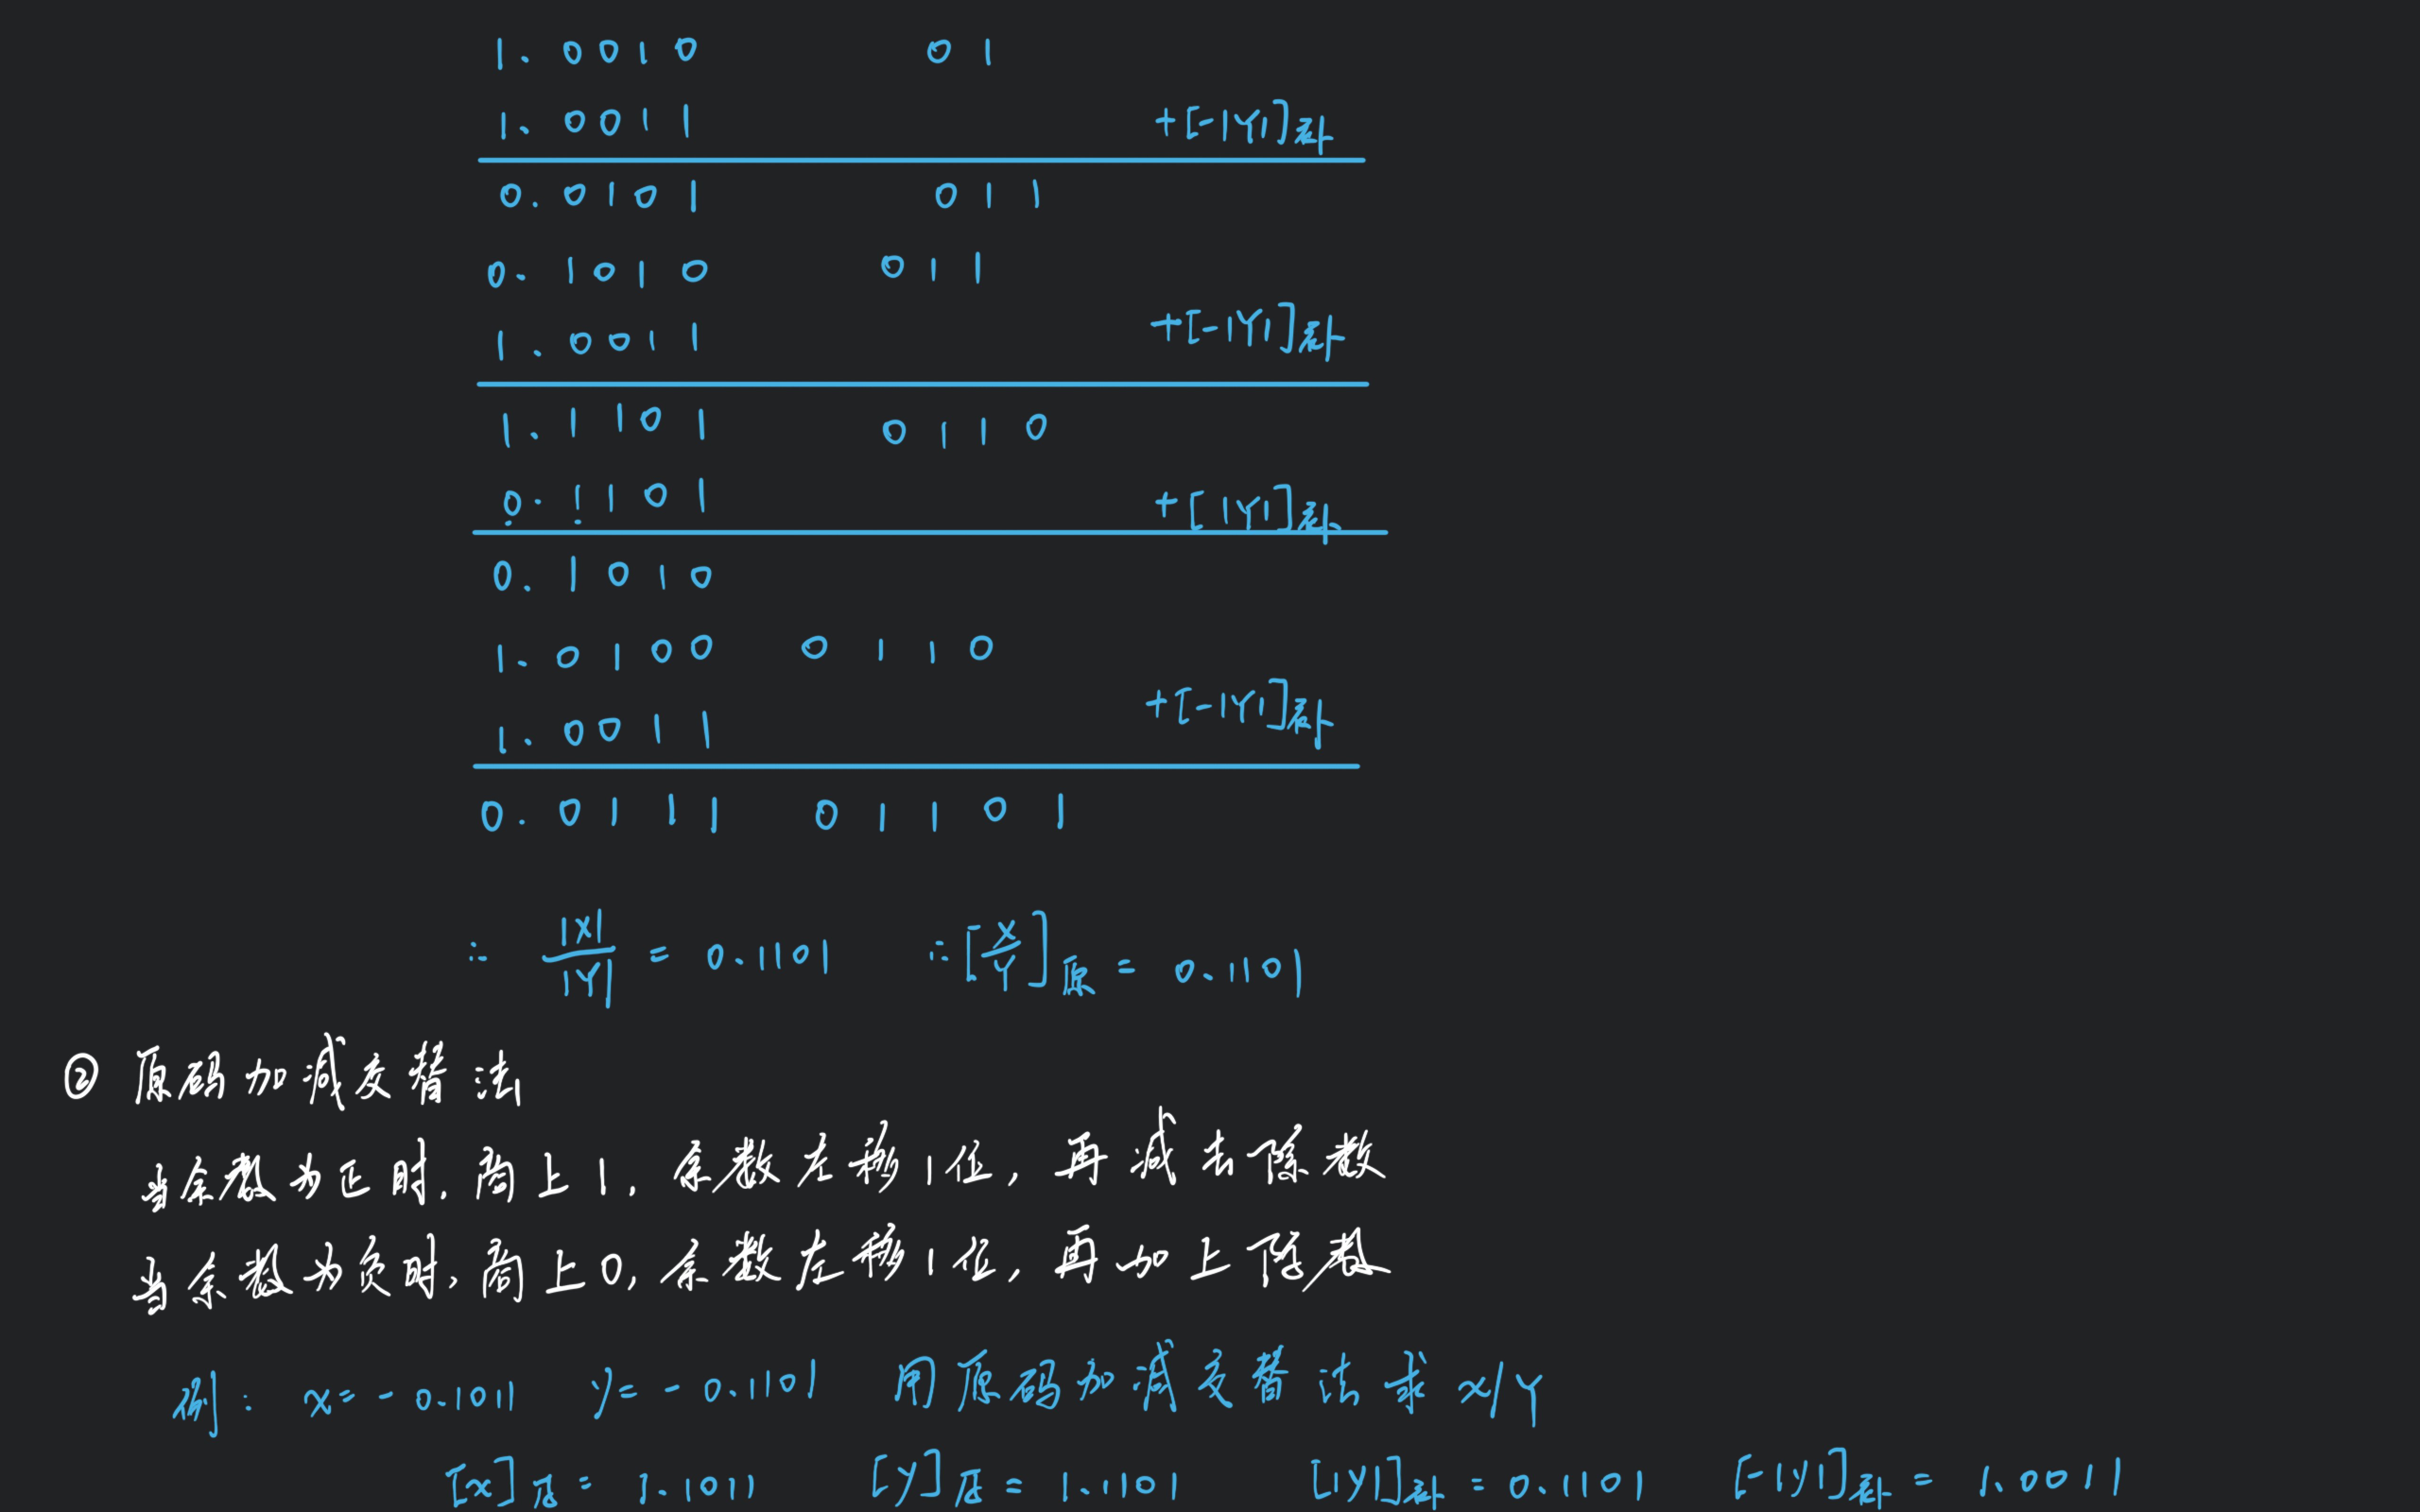 1.0010 01
1.0011 +[-|Y|]补
0.0101 011
0.1010 011
1.0011 +[-|Y|]补
1.1101 0110
0.1101 +[|Y|]补
0.1010
1.0100 0110
1.0011 +[-|Y|]补
0.0111 01101
∴ |X|/|Y| = 0.1101 ∴ [X/Y]原 = 0.1101
② 原码加减交替法
当余数为正时,商上1,余数左移1位,再减去除数
当余数为负时,商上0,余数左移1位,再加上除数
例: x=-0.1011 y=-0.1101 用原码加减交替法求x/Y
[x]原=1.1011 [y]原=1.1101 [|y|]补=0.1101 [-|y|]补=1.0011